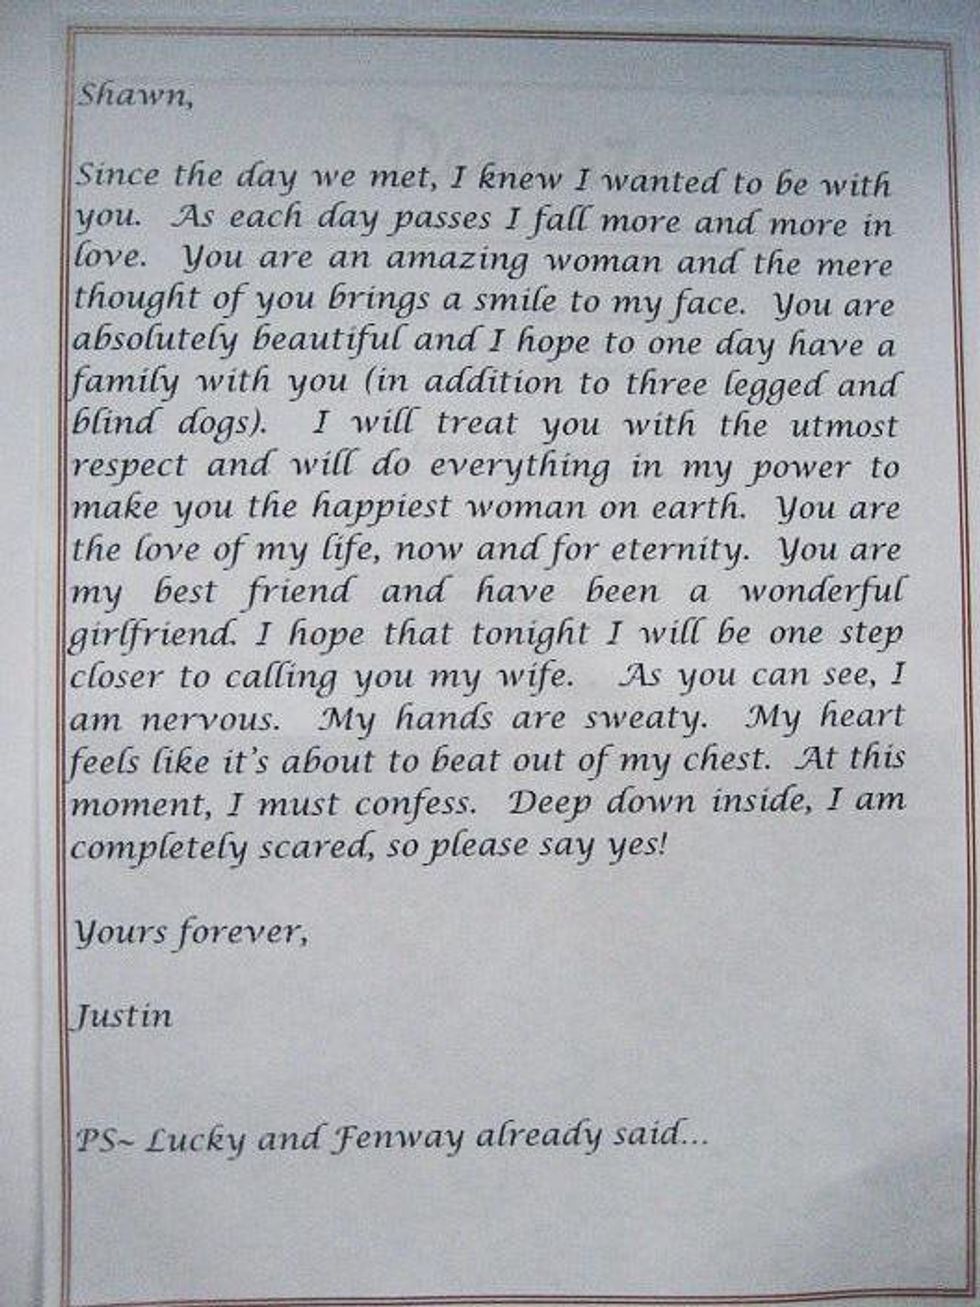 Shawn,
Since the day we met, I knew I wanted to be with
you. As each day passes I fall more and more in
love. You are an amazing woman and the mere
thought of you brings a smile to my face. You are
absolutely beautiful and I hope to one day have a
family with you (in addition to three legged and
blind dogs). I will treat you with the utmost
respect and will do everything in my power to
make you the happiest woman on earth. You are
the love of my life, now and for eternity. You are
my best friend and have been a wonderful
girlfriend. I hope that tonight I will be one step
closer to calling you my wife. As you can see, I
am nervous. My hands are sweaty. My heart
feels like it's about to beat out of my chest. At this
moment, I must confess. Deep down inside, I am
completely scared, so please say yes!
Yours forever,
Justin
PS~ Lucky and Fenway already said...